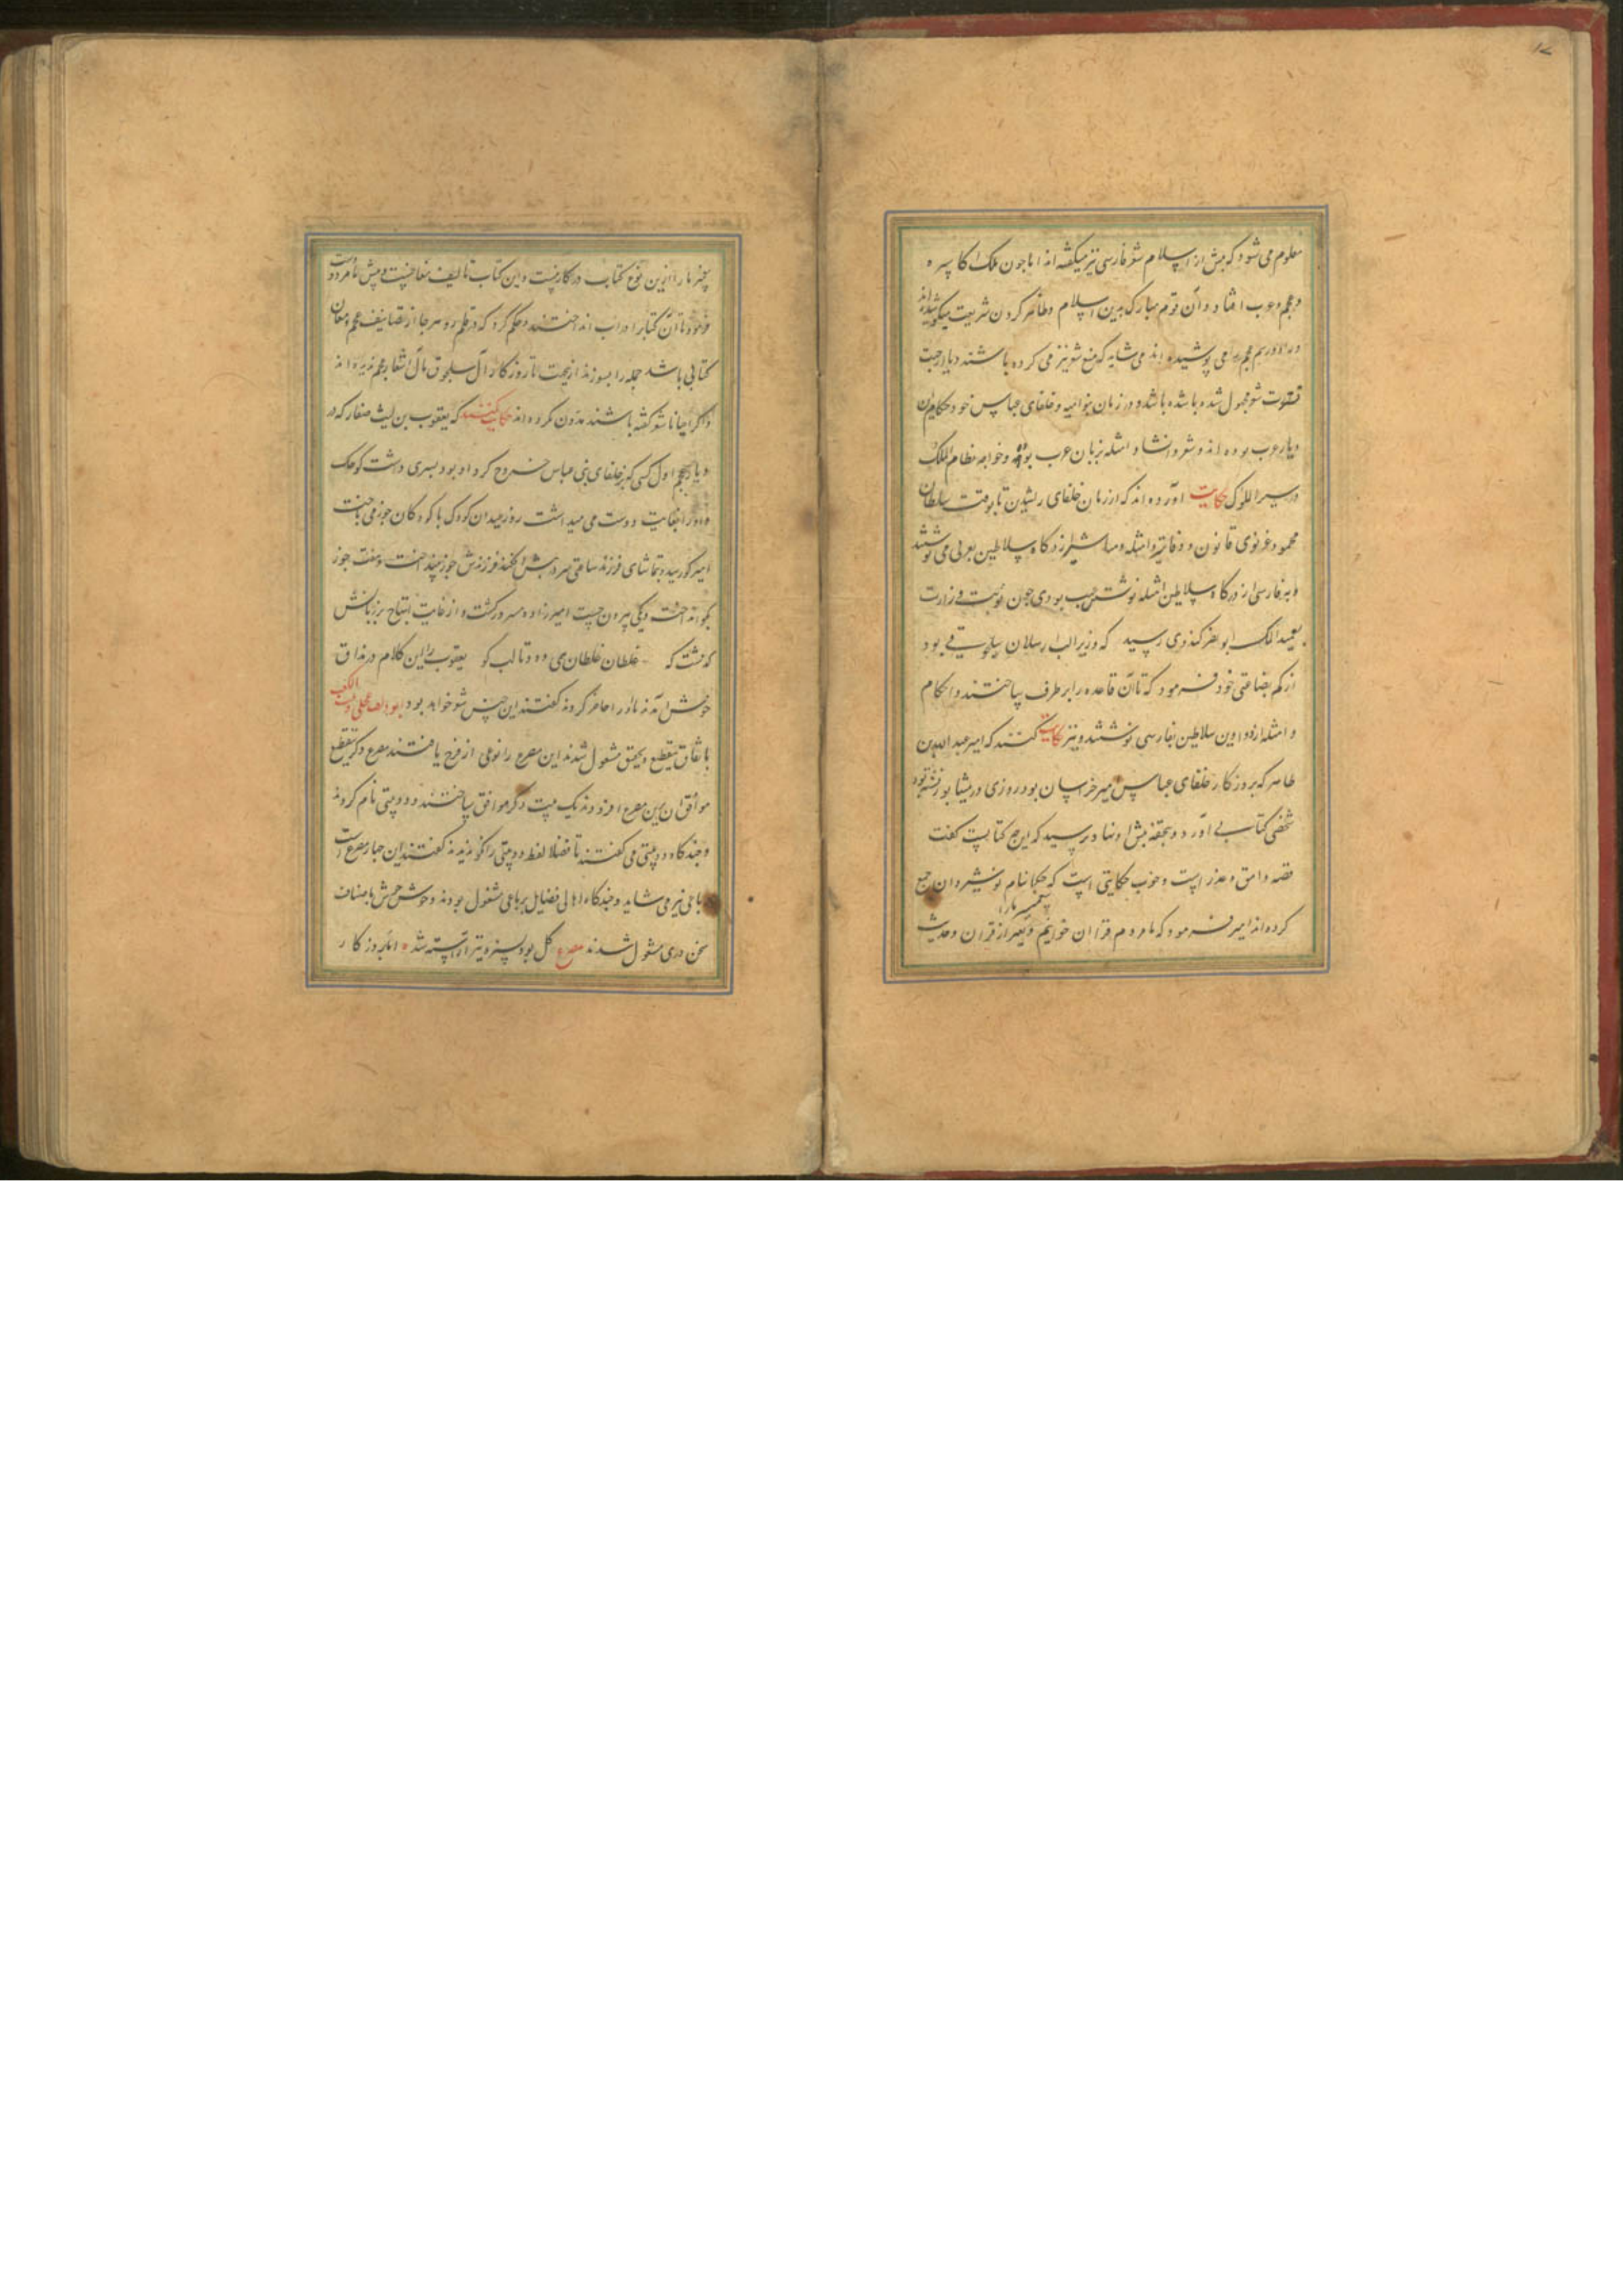 ۱۷
معلوم می شود که پیش از اسلام شعر فارسی نیز میگفته اند اما چون ملک اکاسره
و عجم و عرب افتاد و آن قوم مبارک بدین اسلام و ظاهر کردن شریعت میکوشیده‌اند
و راه و رسم عجم را می پوشیده اند می شاید که منع شعر نیز می کرده باشند و یا از جهت
شعر مجهول شده باشد و در زمان بنوامیه و خلفای عباس خود حکام این
دیار عرب بوده اند و شعر و انشا و امثله بزبان عرب بوده و خواجه نظام الملک
در سیر الملوک حکایت آورده اند که از زمان خلفای راشدین تا بوقت سلطان
محمود غزنوی قانون و دفاتر و امثله و مناشیر از درگاه سلاطین بعربی می نوشتند
و بفارسی از درگاه سلاطین امثله نوشتن عیب بودی چون نوبت وزارت
بعمید الملک ابونصر کندری رسید که وزیر الب ارسلان سلجوقی بود
از کم بضاعتی خود فرمود که تا آن قاعده را بر طرف ساختند و احکام
و امثله از دواوین سلاطین بفارسی نوشتند و نیز حکایت کنند که امیر عبد الله بن
طاهر که بروزکار خلفای عباس میر خراسان بود روزی در نیشابور نشسته بود
شخصی کتابی آورد و بتحفه پیش او نهاد پرسید که این چه کتابست کفت
قصه وامق و عذرا است و خوب حکایتی است که حکما بنام نوشیروان جمع
کرده اند امیر فرمود که ما مردم قرآن خوانیم و بغیر از قرآن و حدیث پیغمبر ما را
چیز ما را ازین نوع کتاب در کار نیست و این کتاب تالیف مغانست و پیش ما مردودست
فرمود تا آن کتاب را در آب انداختند و حکم کرد که در قلمرو هر جا از تصانیف عجم و مغان
کتابی باشد جمله را بسوزند ازین جهت تا روزکار آل سلجوق اشعار عجم ندیده اند
و اکر احیانا شعر کفته باشند مدون نکرده اند حکایت کنند که یعقوب بن لیث صفار که در
دیار عجم اول کسی که بر خلفای بنی عباس خروج کرد او بود پسری داشت کوچک
و او را بغایت دوست می میداشت روز عید آن کودک با کودکان جوز می باخت
امیر بکو رسید و بتماشای فرزند ساعتی فرزندش جوز بینداخت و هفت جوز
بکو افتاد و یکی بیرون جست امیرزاده و از غایت ابتهاج بر زبانش
کذشت که غلطان غلطان همی رود تا لب کو یعقوب را این کلام در مذاق
خوش آمد ندما را حاضر کردند کفتند این جنس شعر خواهد بود ابو دلف عجلی و ابن الکعب
باتفاق بتقطیع و تحقیق مشغول شدند این مصرع را نوعی از هزج یافتند مصرع دکر بتقطیع
موافق آن بدین مصرع افزودند و یک بیت دکر موافق ساختند و دو بیتی نام کردند
و چندکاه دو بیتی می کفتند تا فضلا لفظ دو بیتی را نکو ندیدند کفتند این چهار مصرعست ر
باعی نیز می شاید و چندکاه اهالی فضایل برباعی مشغول بودند و خوش خوش باصناف
سخن دری مشغول شدند مصرع کل بود بسبزه نیز آراسته شد اما بروزکار